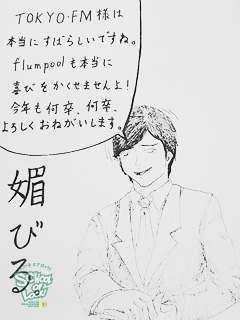 TOKYO・FM様は
本当にすばらしいですね。
flumpoolも本当に
喜びをかくせませんよ！
今年も何卒、何卒、
よろしくおねがいします。
媚びる
School of Lock!